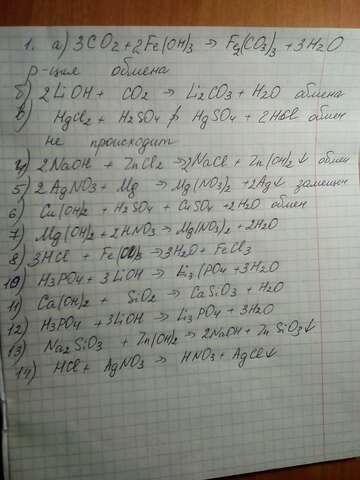 1. а) 3CO2 + 2Fe(OH)3 → Fe2(CO3)3 + 3H2O
р-ция обмена
б) 2LiOH + CO2 → Li2CO3 + H2O обмена
в) HgCl2 + H2SO4 ↛ HgSO4 + 2HCl обмен
не происходит
4) 2NaOH + ZnCl2 → 2NaCl + Zn(OH)2↓ обмен
5) 2AgNO3 + Mg → Mg(NO3)2 + 2Ag↓ замещен
6) Cu(OH)2 + H2SO4 + CuSO4 + 2H2O обмен
7) Mg(OH)2 + 2HNO3 → Mg(NO3)2 + 2H2O
8) 3HCl + Fe(OH)3 → 3H2O + FeCl3
10) H3PO4 + 3LiOH → Li3(PO4 + 3H2O
11) Ca(OH)2 + SiO2 → CaSiO3 + H2O
12) H3PO4 + 3LiOH → Li3PO4 + 3H2O
13) Na2SiO3 + Zn(OH)2 → 2NaOH + ZnSiO3↓
14) HCl + AgNO3 → HNO3 + AgCl↓